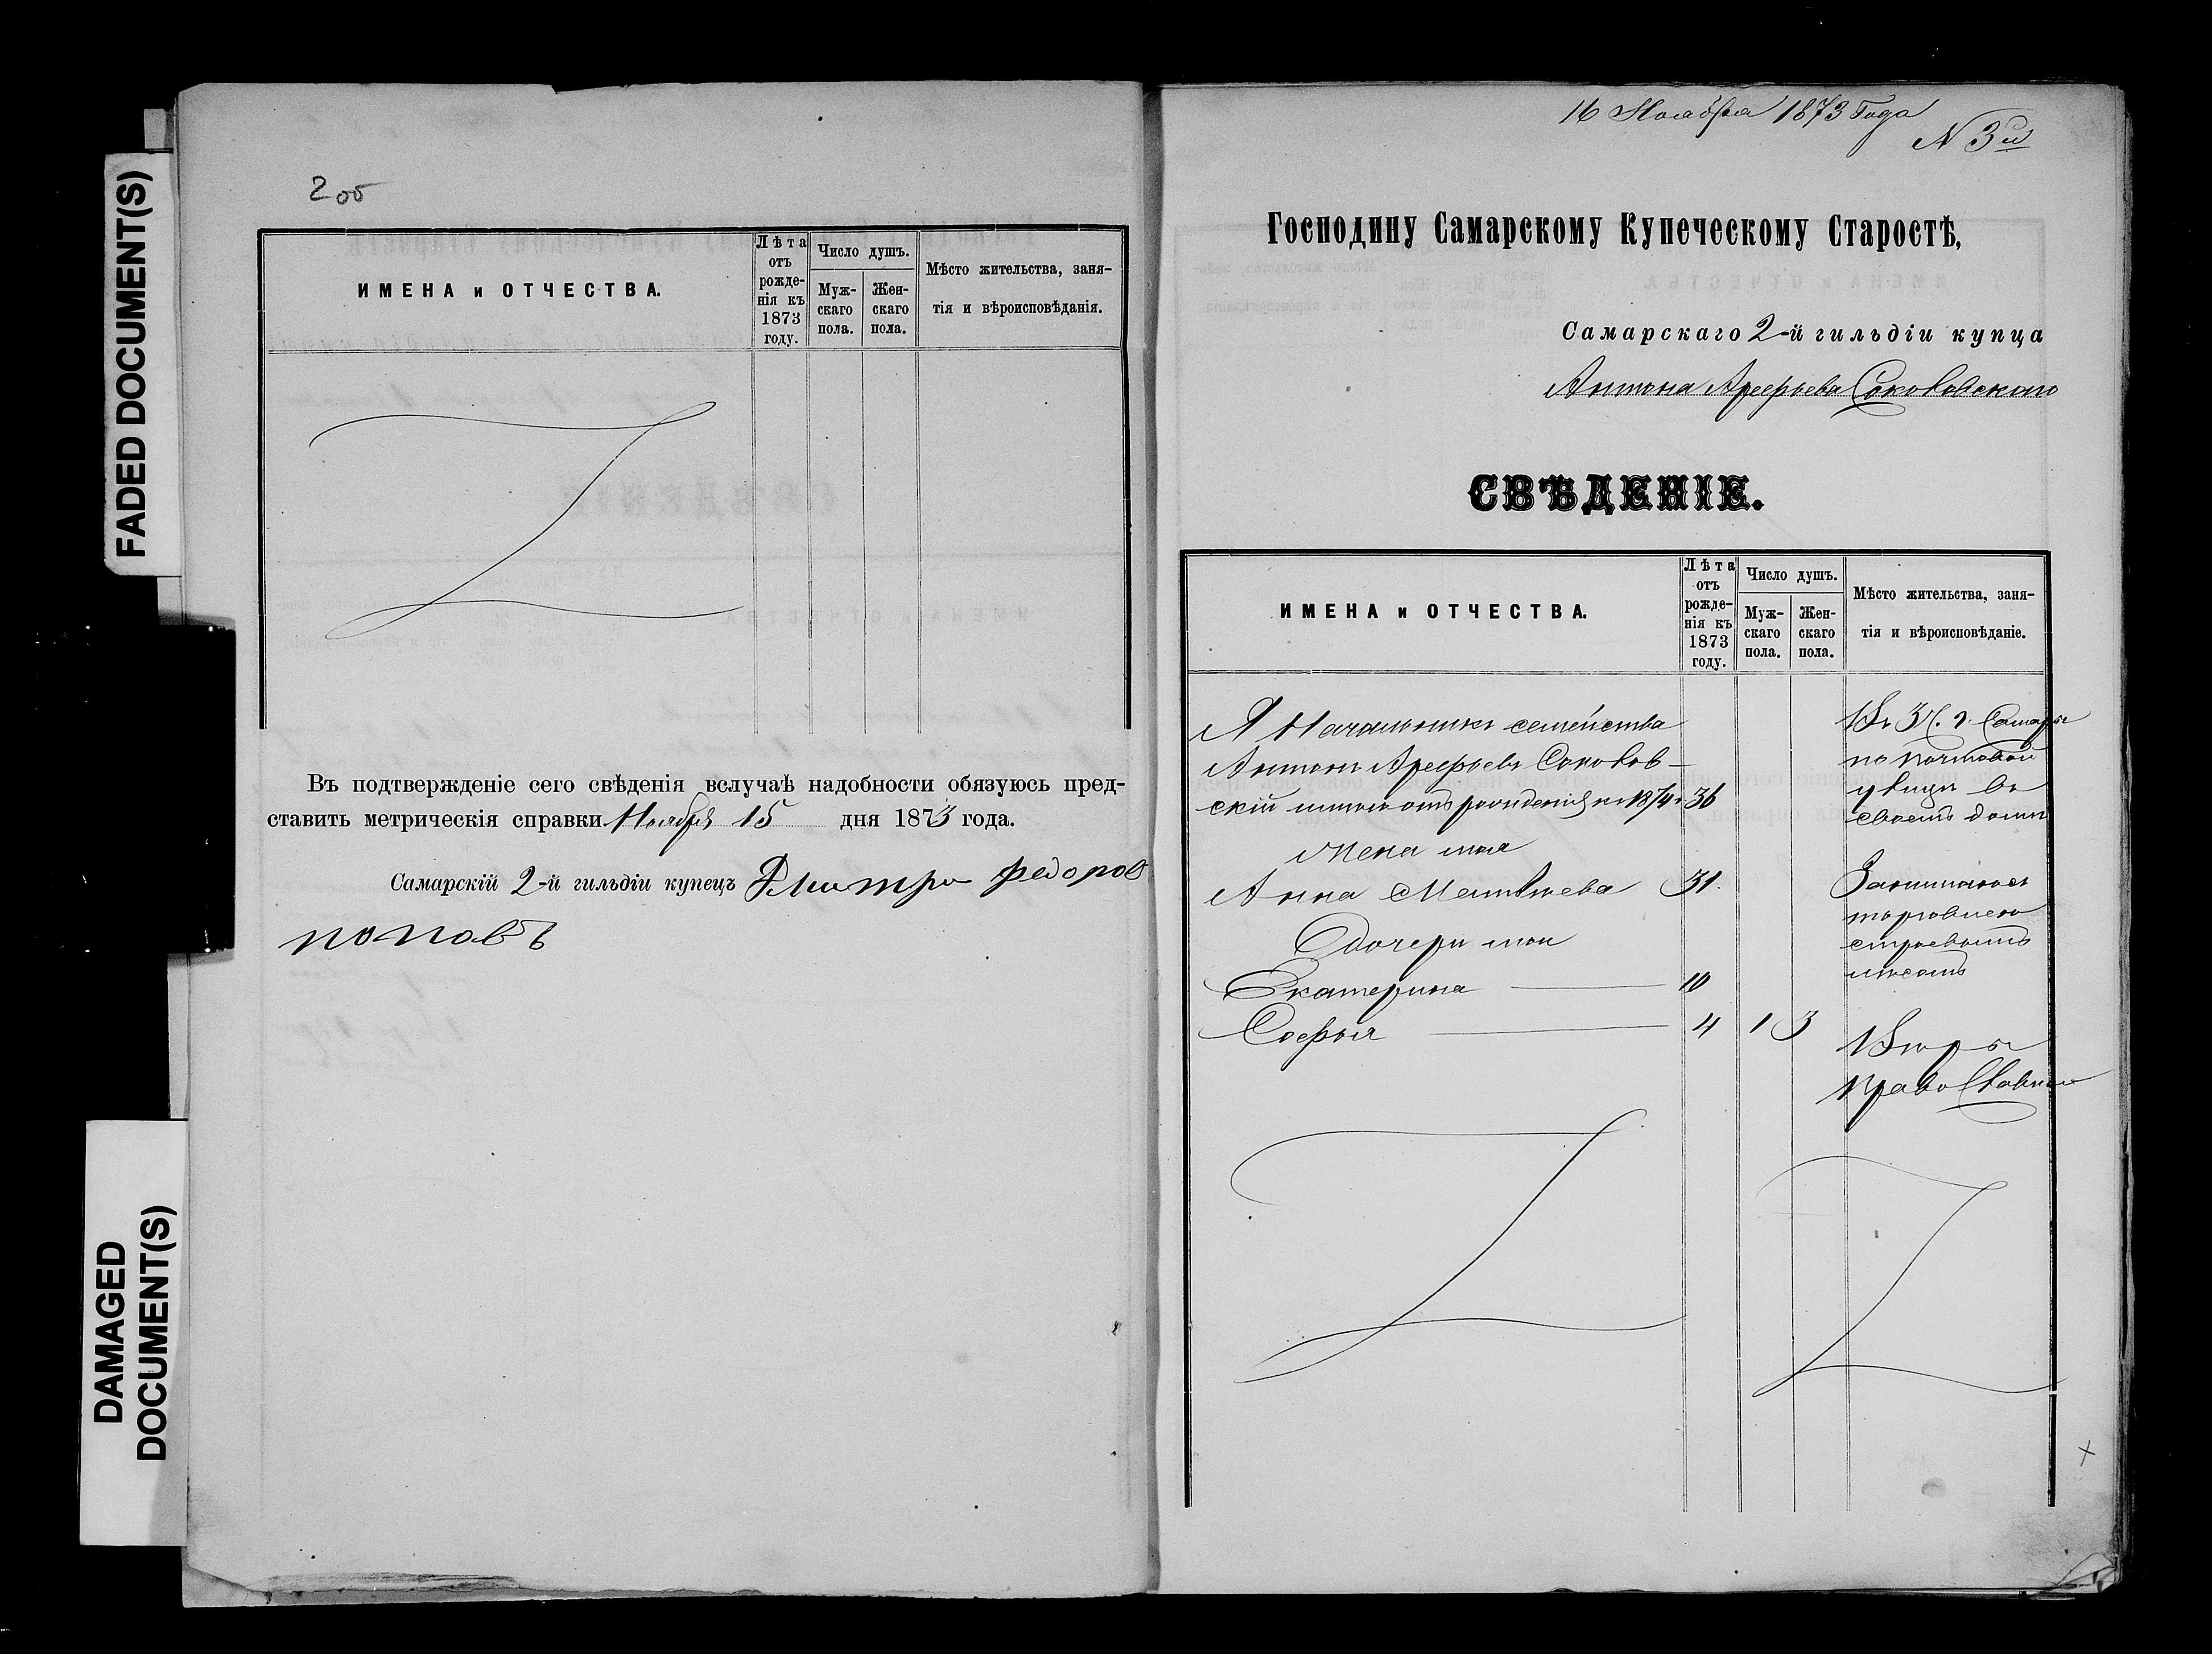 FADED DOCUMENT(S)
DAMAGED
DOCUMENT(S)
2 об
ИМЕНА и ОТЧЕСТВА.
Лѣта
отъ
рожде-
нія къ
1873
году.
Число душъ.
Муж-
скаго
пола.
Жен-
скаго
пола.
Мѣсто жительства, заня-
тія и вѣроисповѣданія.
Въ подтвержденіе сего свѣденія вслучаѣ надобности обязуюсь пред-
ставить метрическія справки. Ноября 15 дня 1873 года.
Самарскій 2-й гильдіи купецъ Дмитри федоров
поповъ
16 Ноября 1873 Года
N 3й
Господину Самарскому Купеческому Старостѣ,
Самарскаго 2-й гильдіи купца
Антона Арефьева Соковскаго
СВѢДЕНІЕ.
ИМЕНА и ОТЧЕСТВА.
Лѣта
отъ
рожде-
нія къ
1873
году.
Число душъ.
Муж-
скаго
пола.
Жен-
скаго
пола.
Мѣсто жительства, заня-
тія и вѣроисповѣданіе.
Я Начальникъ семейства
Антонъ Арефьевъ
скій отъ рожденія къ 1874 г 36
Жена моя
Анна Матвѣева 31.
Дочери мои
Екатерина 10
Софья 4 1 3
Въ 3 Ч. г. Самары
по почтовой
улицѣ въ
своемъ домѣ
Занимаюсь
торговлею
строевымъ
лѣсомъ
Вѣры
Православной